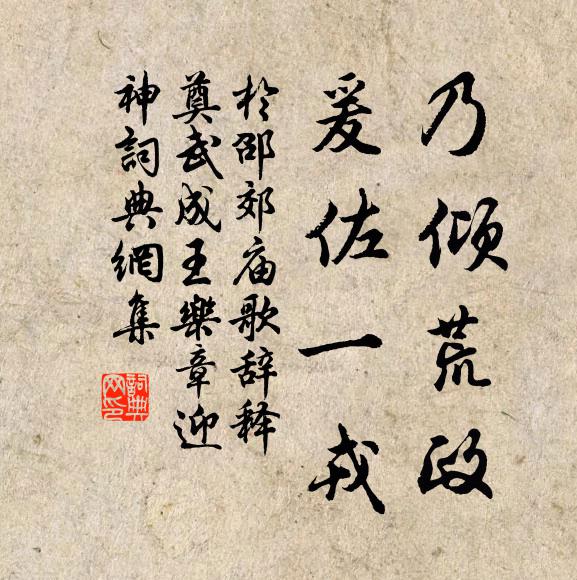 乃倾荒政
爰佐一戎
於邵郊庙歌辞释
奠武成王樂章迎
神詞典網集
詞典網印